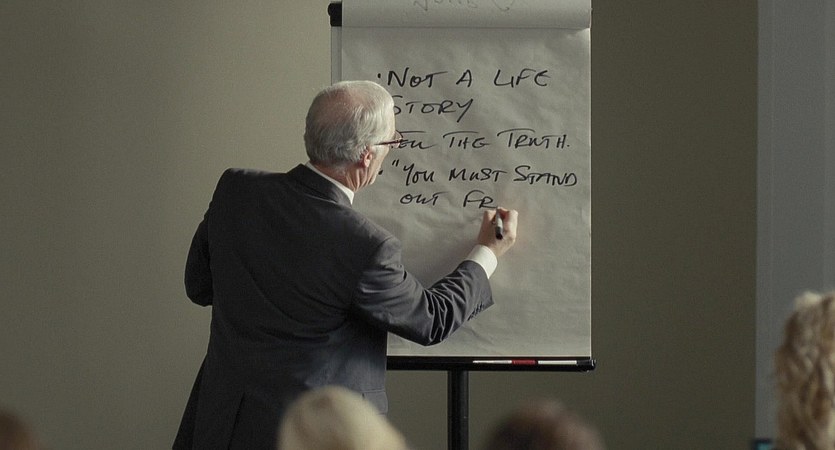 · NOT A LIFE
STORY
THE TRUTH.
· "YOU MUST STAND
OUT FR